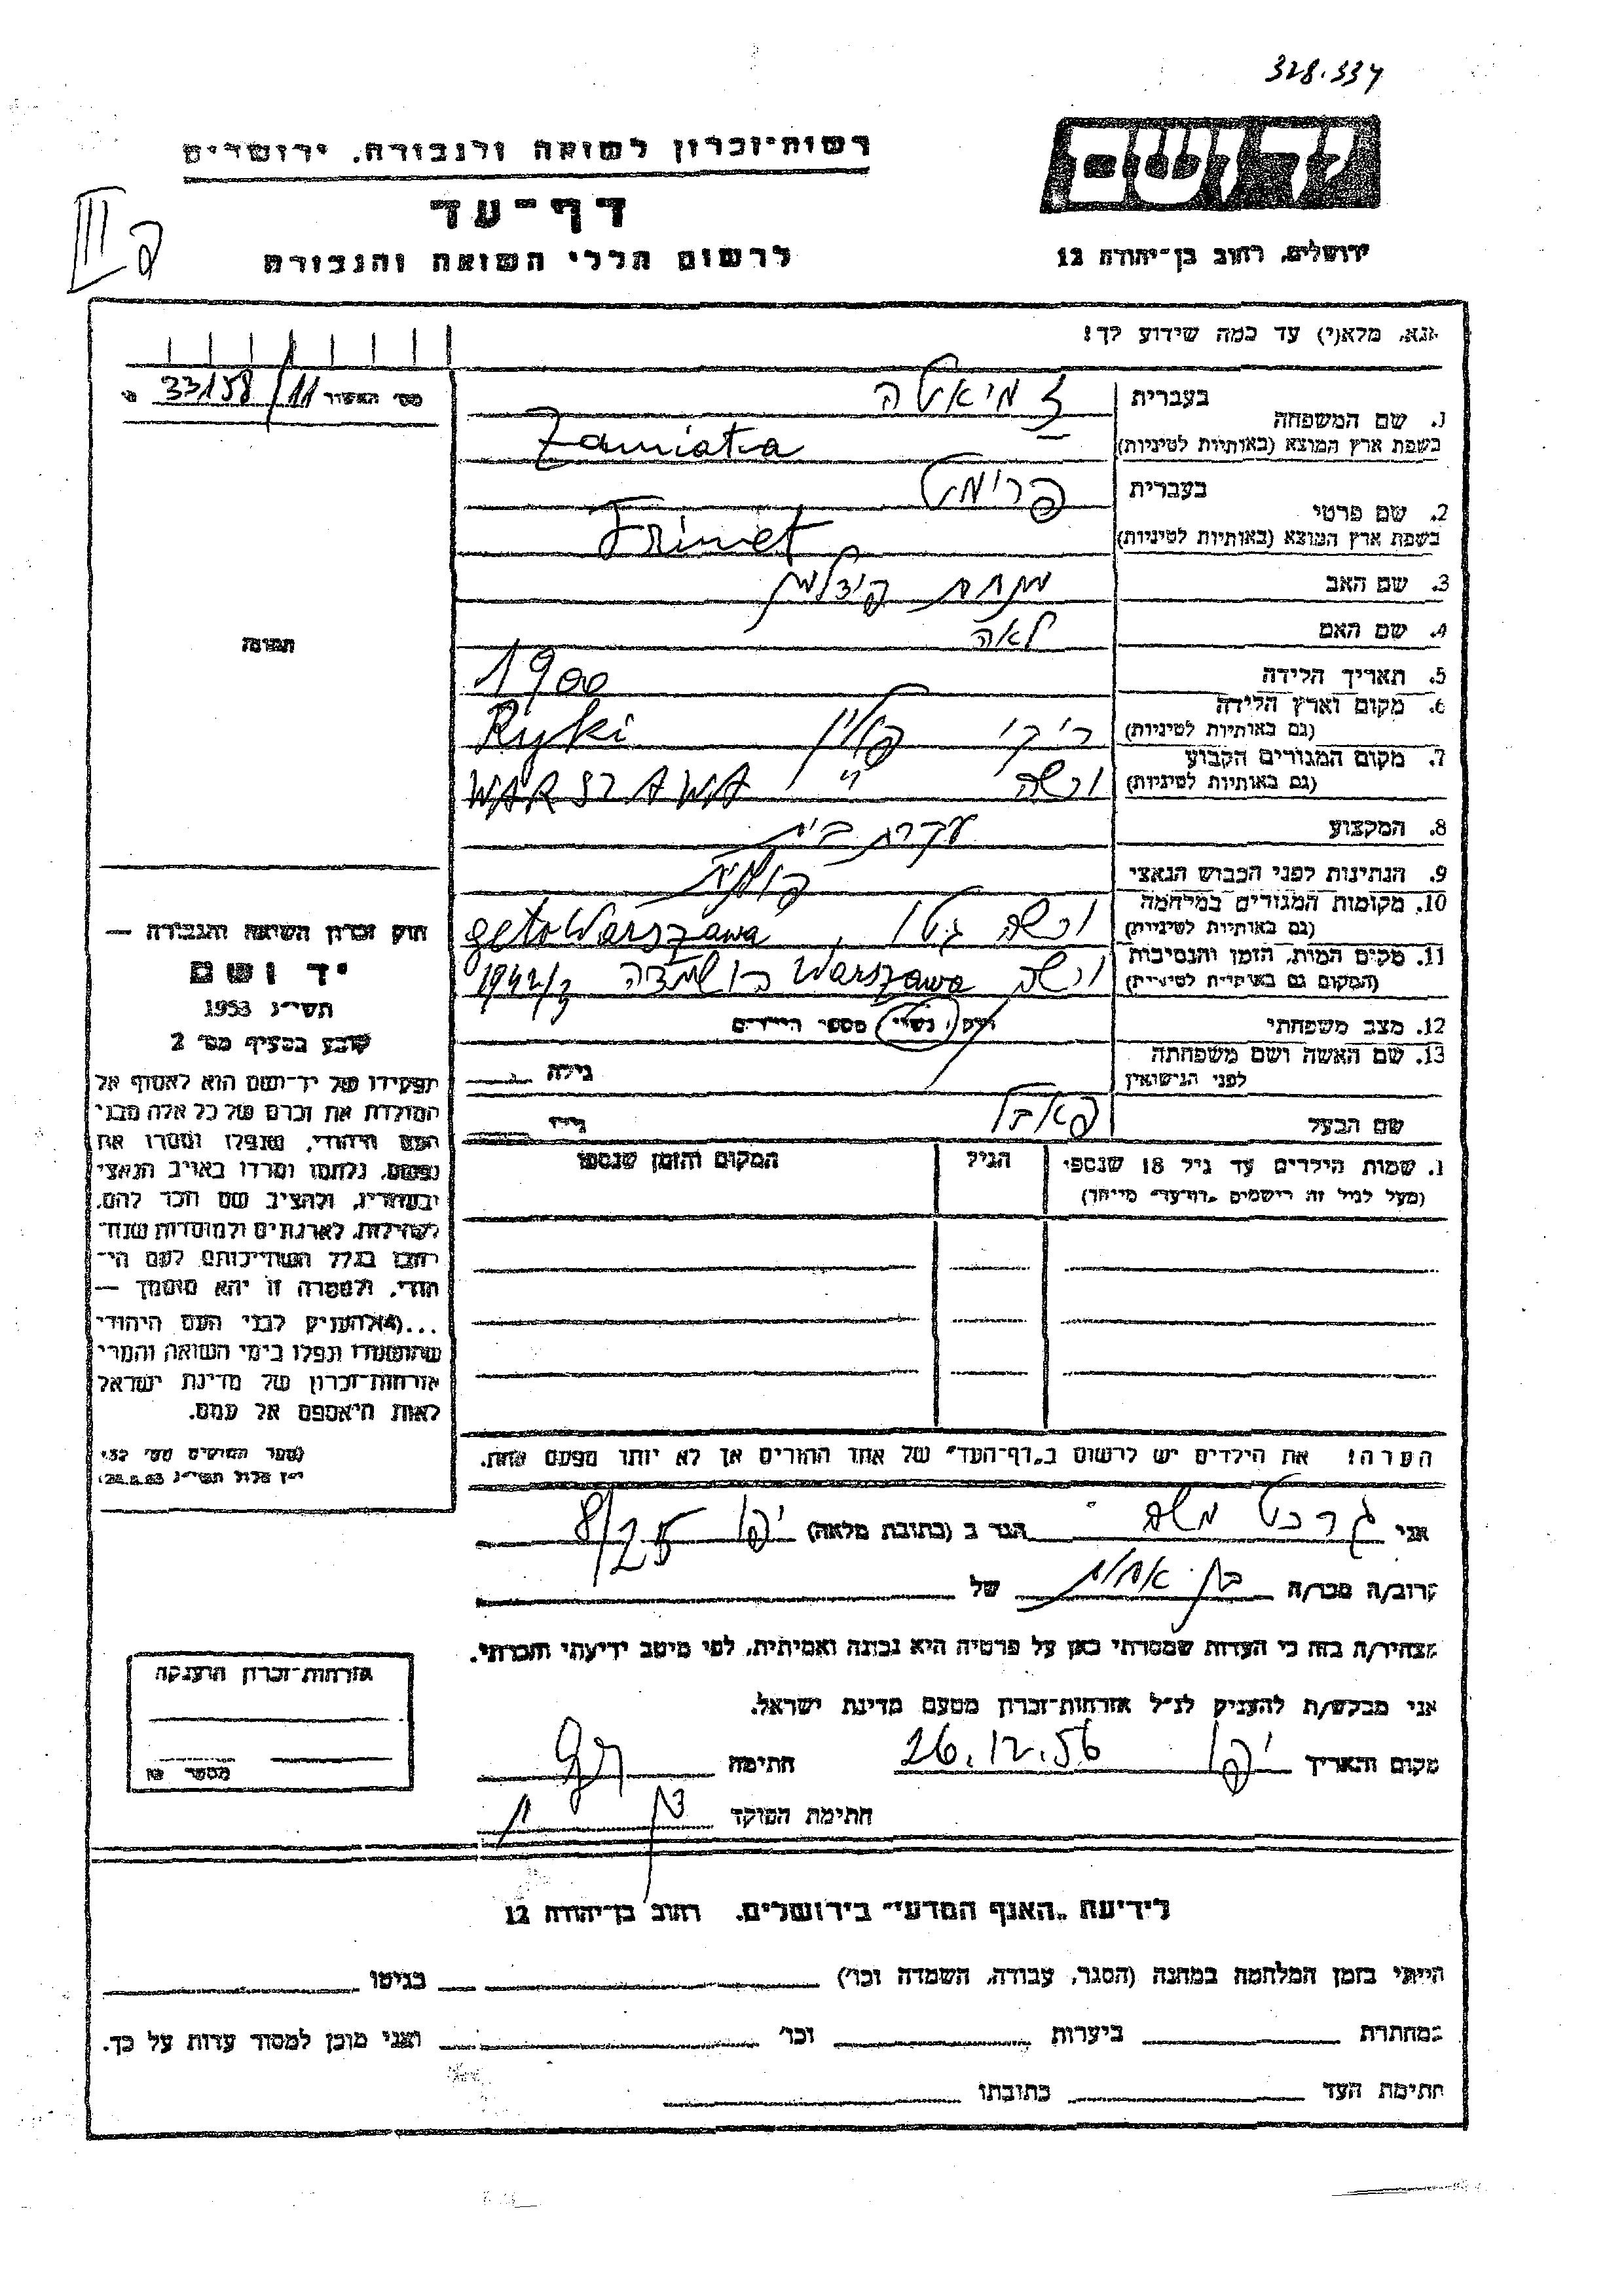 328.334
רשות-זכרון לשואה ולגבורה, ירושלים
יד ושם
דף-עד
לרשום חללי השואה והגבורה
ירושלים, רחוב בן-יהודה 12
III ק
אנא, מלא(י) עד כמה שידוע לך!
מס' האשור 33158/11
1. שם המשפחה
בעברית זמיאטה
בשפת ארץ המוצא (באותיות לטיניות) Zamiatia
2. שם פרטי
בעברית פרימט
בשפת ארץ המוצא (באותיות לטיניות) Frimet
3. שם האב מנחם
4. שם האם לאה
5. תאריך הלידה 1900
6. מקום וארץ הלידה
(גם באותיות לטיניות) ריקי פולין Ryki
7. מקום המגורים הקבוע
(גם באותיות לטיניות) ורשה " WARSZAWA
8. המקצוע עקרת בית
9. הנתינות לפני הכבוש הנאצי פולנית
10. מקומות המגורים במלחמה
(גם באותיות לטיניות) ורשה גיטו, geto Warszawa
11. מקום המות, הזמן והנסיבות
(המקום גם באותיות לטיניות) ורשה Warszawa בהשמדה 1942/3
12. מצב משפחתי רווק/ נשוי מספר הילדים
13. שם האשה ושם משפחתה
לפני הנישואין גילה
שם הבעל גילו
שמות הילדים עד גיל 18 שנספו
(מעל לגיל זה רישמים "דף-עד" מייחד)
הגיל
המקום והזמן שנספו
הערה: את הילדים יש לרשום ב"דף-העד" של אחד ההורים אך לא יותר מפעם אחת.
תמונה
חוק זכרון השואה והגבורה —
יד ושם
תשי"ג 1953
קובע בסעיף מס' 2
תפקידו של יד-ושם הוא לאסוף אל
המולדת את זכרם של כל אלה מבני
העם היהודי, שנפלו ומסרו את
נפשם, נלחמו ומרדו באויב הנאצי
ובעוזריו, ולהציב שם וזכר להם,
לקהילות, לארגונים ולמוסדות שנח-
רבו בגלל השתייכותם לעם הי-
הודי, ולמטרה זו יהא מוסמך —
...(4) להעניק לבני העם היהודי
שהושמדו ונפלו בימי השואה והמרי
אזרחות-זכרון של מדינת ישראל
לאות היאספם אל עמם.
(ספר החוקים מס' 132
י"ז אלול תשי"ג 28.8.53)
אני משה הגר ב (כתובת מלאה) יפו 8/25
קרוב/ה מכר/ה בן אחות של
מצהיר/ה בזה כי העדות שמסרתי כאן על פרטיה היא נכונה ואמיתית, לפי מיטב ידיעתי והכרתי.
אני מבקש/ת להעניק לנ"ל אזרחות-זכרון מטעם מדינת ישראל.
מקום והתאריך יפו 26.12.56 חתימה
חתימת הפוקד
אזרחות-זכרון הוענקה
מספר
לידיעת "האגף המדעי" בירושלים, רחוב בן-יהודה 12
הייתי בזמן המלחמה במחנה (הסגר, עבודה, השמדה וכו') בגיטו
במחתרת ביערות וכו' ואני מוכן למסור עדות על כך.
חתימת העד כתובתו